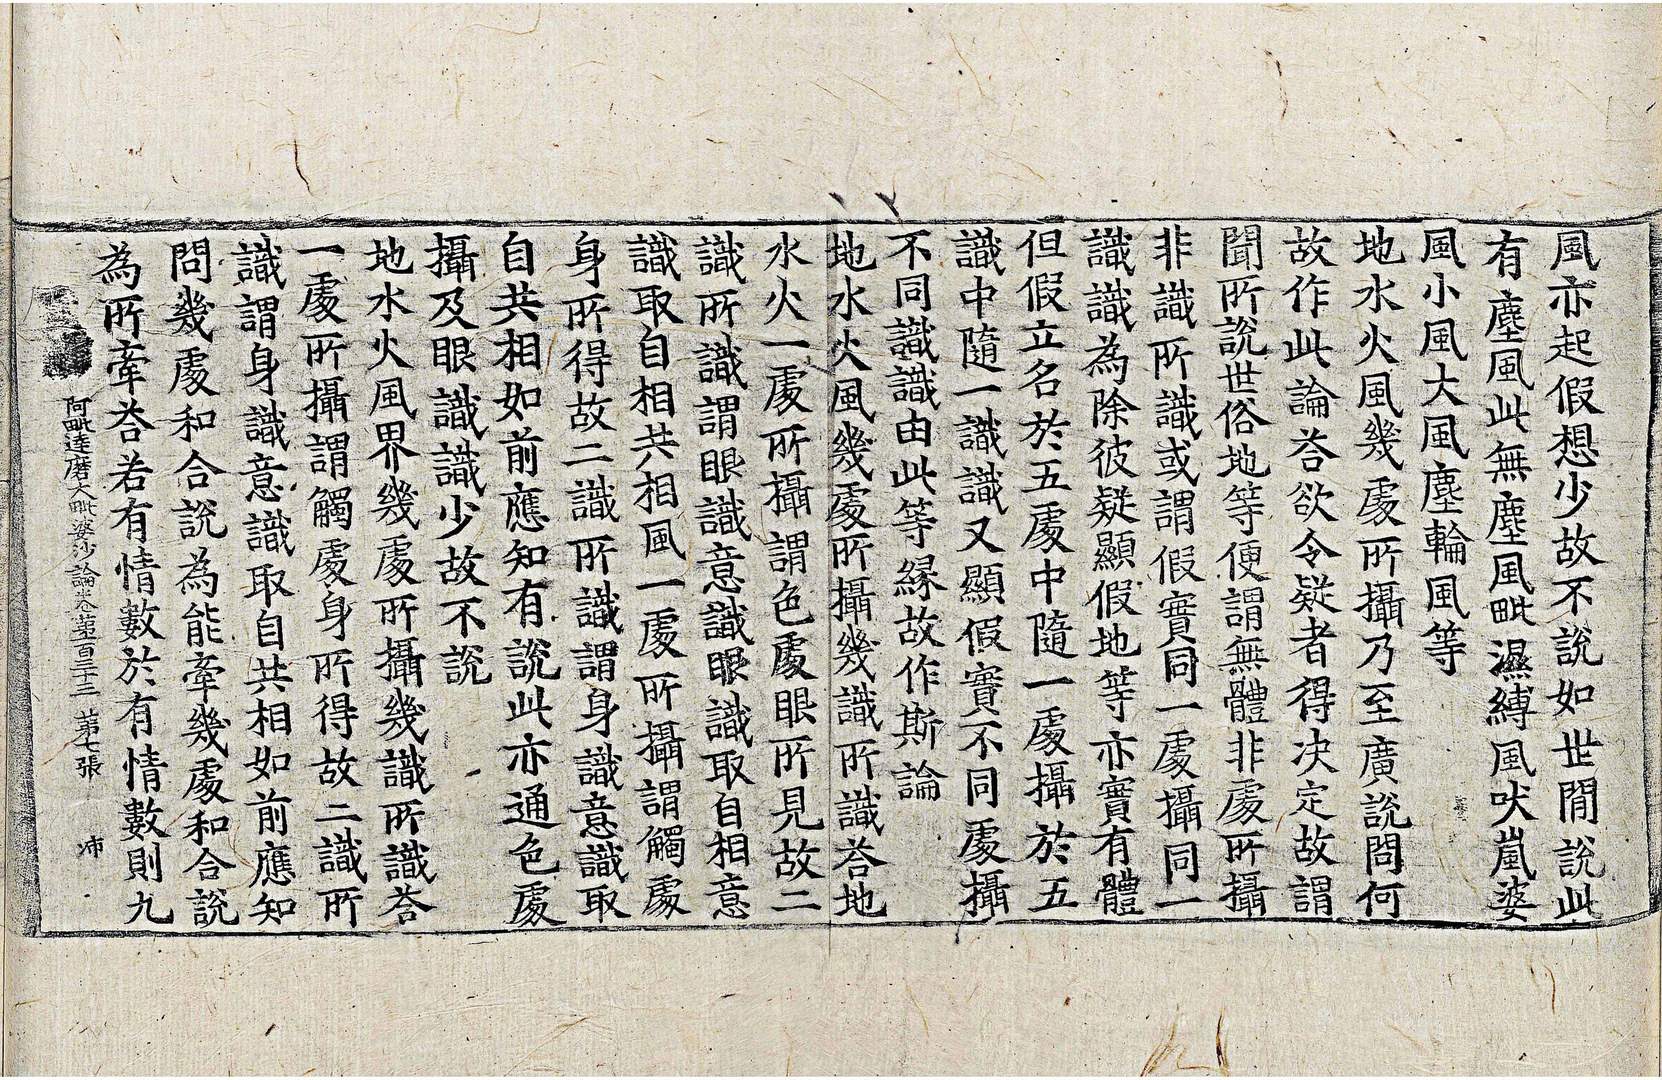 風亦起假想少故不說如世間說此
有塵風此無塵風毗濕縛風吠嵐婆
風小風大風塵輪風等
地水火風幾處所攝乃至廣說問何
故作此論荅欲令疑者得决定故謂
聞所說世俗地等便謂無體非處所攝
非識所識或謂假實同一處攝同一
識識為除彼疑顯假地等亦實有體
但假立名於五處中隨一處攝於五
識中隨一識識又顯假實不同處攝
不同識識由此等緣故作斯論
地水火風幾處所攝幾識所識荅地
水火一處所攝謂色處眼所見故二
識所識謂眼識意識眼識取自相意
識取自相共相風一處所攝謂觸處
身所得故二識所識謂身識意識取
自共相如前應知有說此亦通色處
攝及眼識識少故不說
地水火風界幾處所攝幾識所識荅
一處所攝謂觸處身所得故二識所
識謂身識意識取自共相如前應知
問幾處和合說為能牽幾處和合說
為所牽荅若有情數於有情數則九
阿毗達磨大毗婆沙論卷第一百三十三 第七張 沛